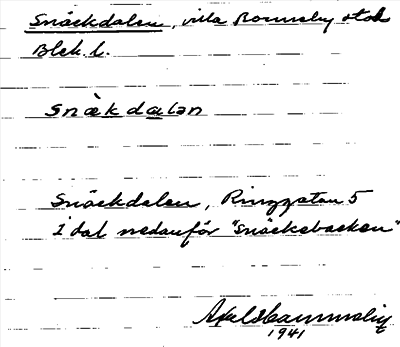 Snäckdalen, villa Ronneby stad
Blek. l.
snàkdalən
Snäckdalen, Ringgatan 5
I dal nedanför "Snäckebacken"
Axel Hammelin
1941